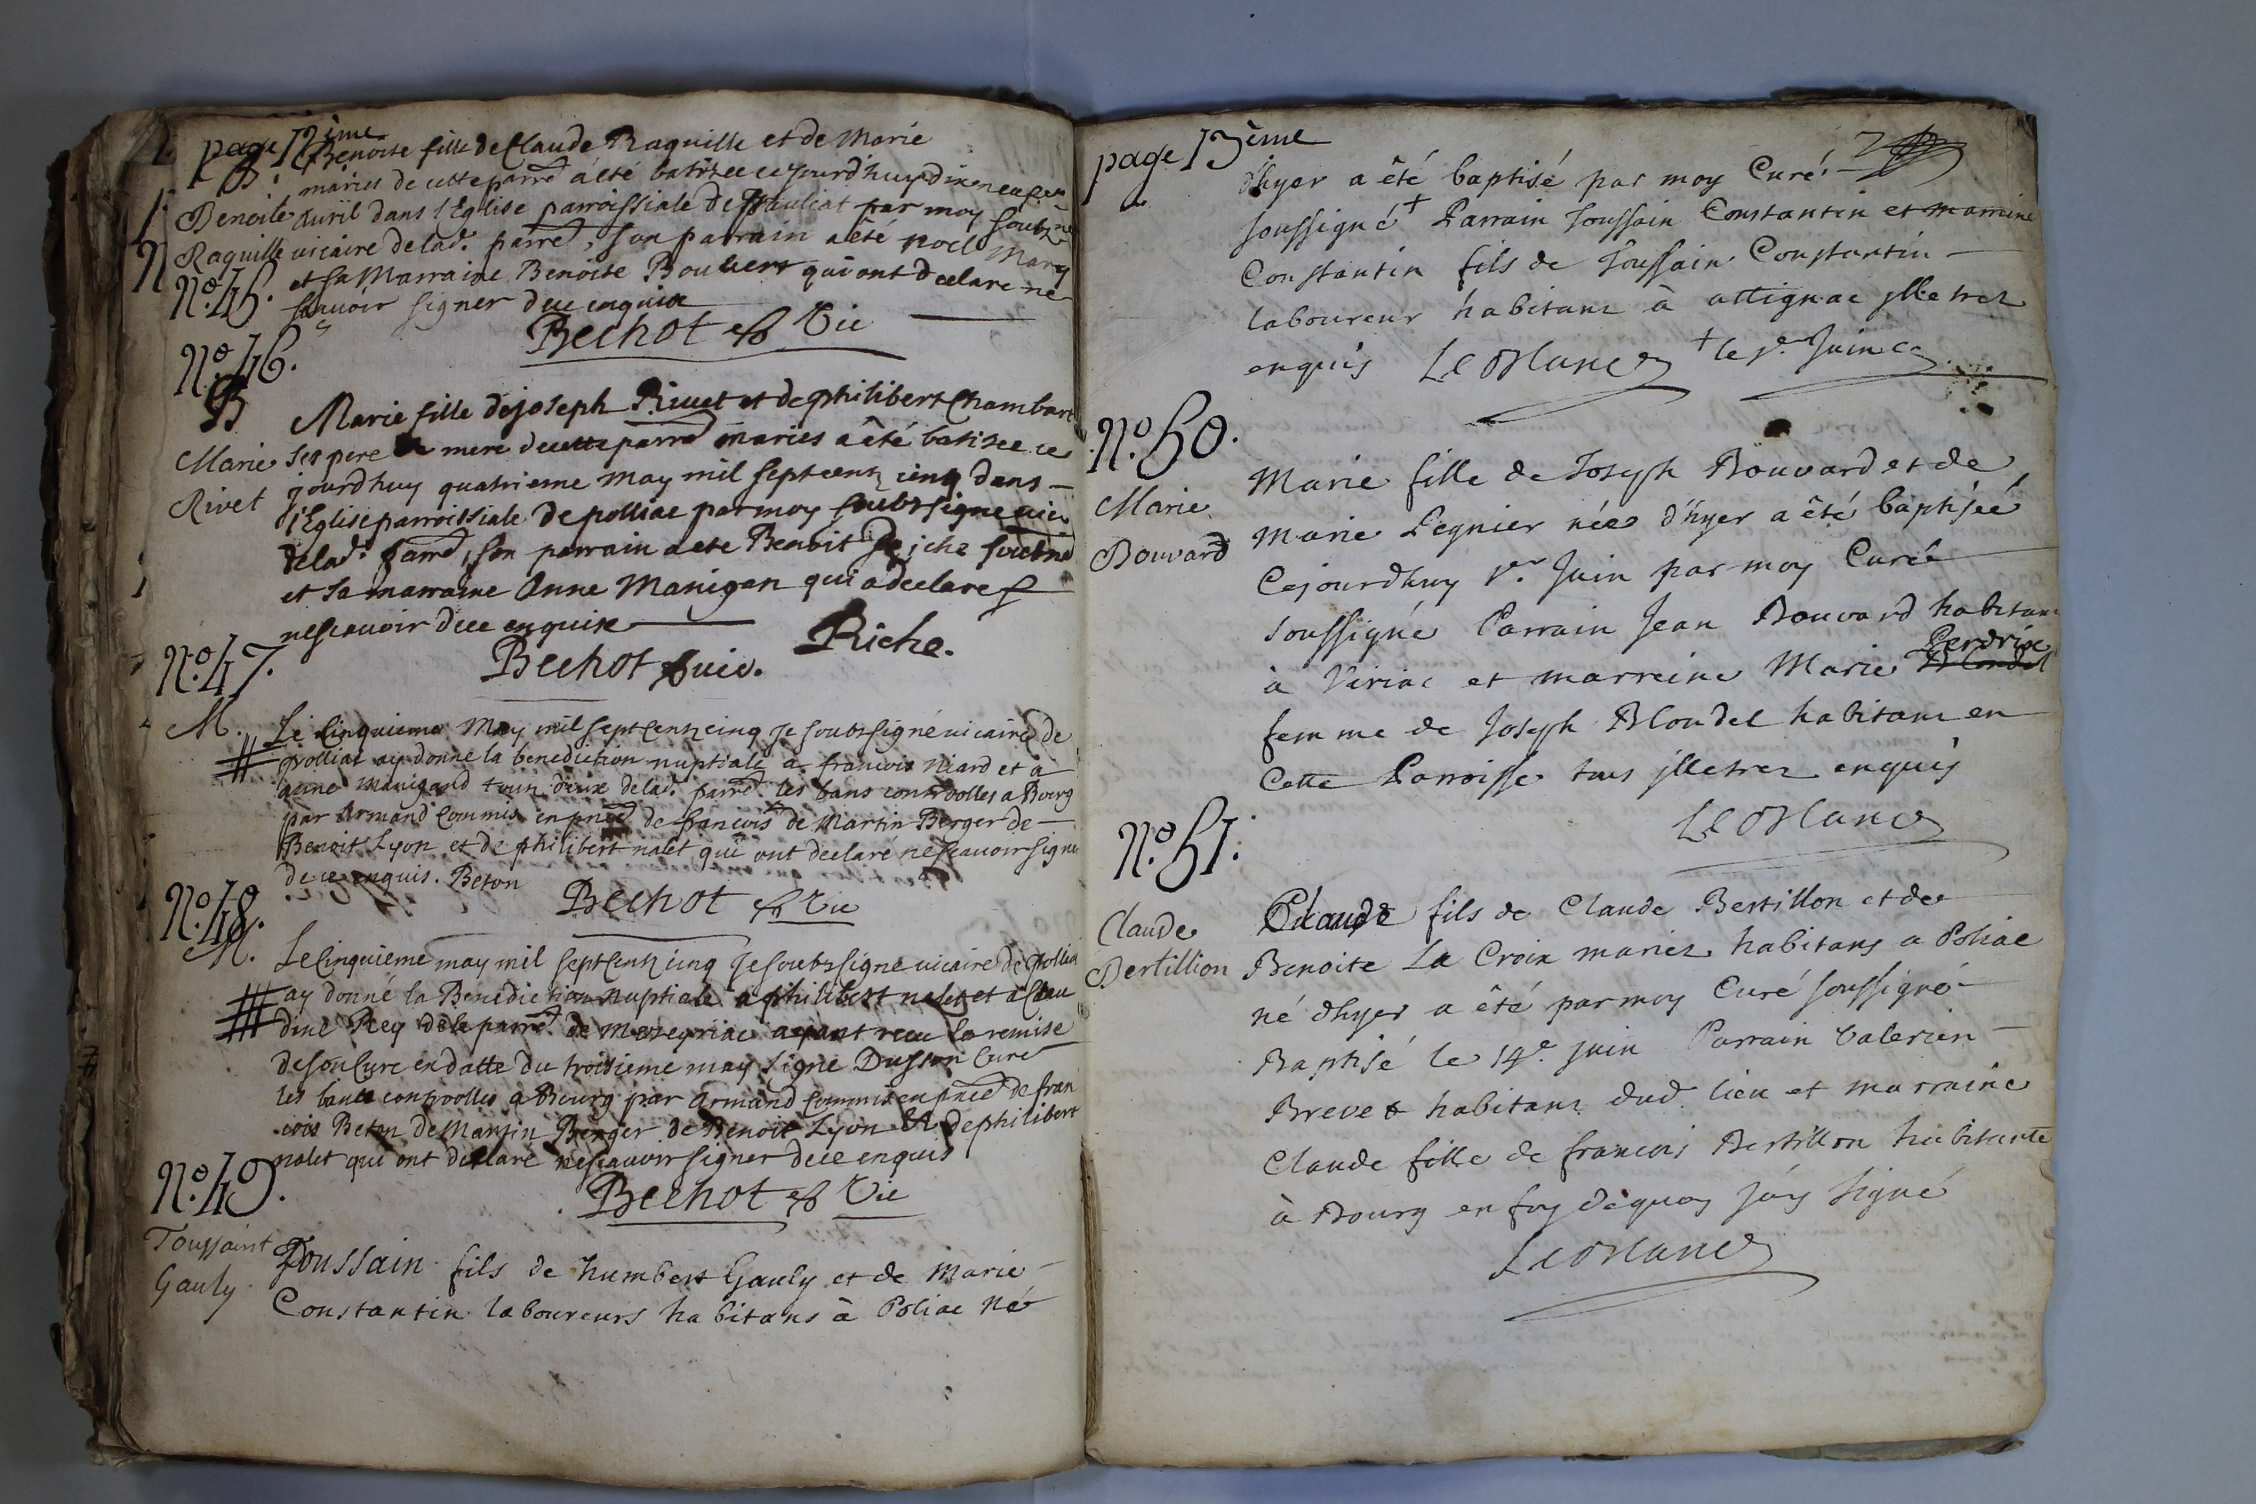 page 12ème
B. Benoite fille de Claude Raquille et de Marie
mariés de cette parre a été batisee ce jourdhuy dixneufie
Benoite Auril dans l'Eglise parroissiale de par moy soubz
Raquille uicaire de lad. parre, son parrain a été noel Mary
No. 45. et sa Marraine Benoite Bouuert qui ont declare ne
scauoir signer dece enquise
Bechot Vic
No. 46.
B
Marie fille de joseph Riuet et de philibert Chambart
Marie ses pere mere de cette parre maries a été batisee ce
Rivet jourdhuy quatrieme may mil sept centz cinq dans
l'Eglise parroissiale de polliac par moy soubzsigne uic
de lad. parre, son parrain a ete Benoit Riche soubne
et sa marraine Anne Manigan qui a declare
nescauoir dece enquise
Riche.
Bechot uic.
No. 47.
M.
Le Cinquieme May mil sept Centz cinq Je soubzsigné uicaire de
polliat ay donne la benediction nuptiale a francois niard et a
anne manigand tous deux de lad. parre. les bans controolles a Bourg
par Armand Commis en pnce de francois de Martin Berger de
Benoit Lyon et de philibert nalet qui ont declare nescauoir signe
de ce enquis. Beton
Bechot Vic
No. 48.
M.
Le Cinquième may mil sept Centz cinq Je soubzsigne uicaire de polliat
ay donné la Benediction nuptiale a philibert nalet et a Clau
dine Rey de la parre. de mezeyriac ayant receu la remise
de son Cure en datte du troisieme may signe Dusson Cure
les bancs controolles a Bourg par Armand Commis en pnce de fran
cois Beton de Martin Berger de Benoit Lyon & de philibert
nalet qui ont declare nescauoir signer dece enquis
Bechot Vic
No. 49.
Toussaint
Gauly
Toussain fils de humbert Gauly et de Marie
Constantin laboureurs habitans à Poliac né
page 13ème
d'hyer a été baptisé par moy Curé
soussigné + Parrain Toussain Constantin et marrine
Constantin fils de Toussain Constantin
laboureur habitans à attignac illetrez
enquis LeBlanc + le 1er. Juin
No. 50.
Marie
Bouvard
Marie fille de Joseph Bouvard et de
Marie Pegnier née d'hyer a été baptiséé
Cejourdhuy 1er. Juin par moy Curé
soussigné Parrain Jean Bouvard habitans
Perdrix
à Viriac et marreine Marie Blondel
femme de Joseph Blondel habitans en
Cette Parroisse tous illetrez enquis
LeBlanc
No. 51.
Claude
Bertillion
Claude fils de Claude Bertillon et de
Benoite La Croix mariez habitans a Poliac
né dhyer a été par moy Curé soussigné
Baptisé le 14e. juin Parrain Valerien
Brevet habitans dud. lieu et marraine
Claude fille de francois Bertillon habitante
à Bourg en foy dequoy j'ay signé
LeBlanc